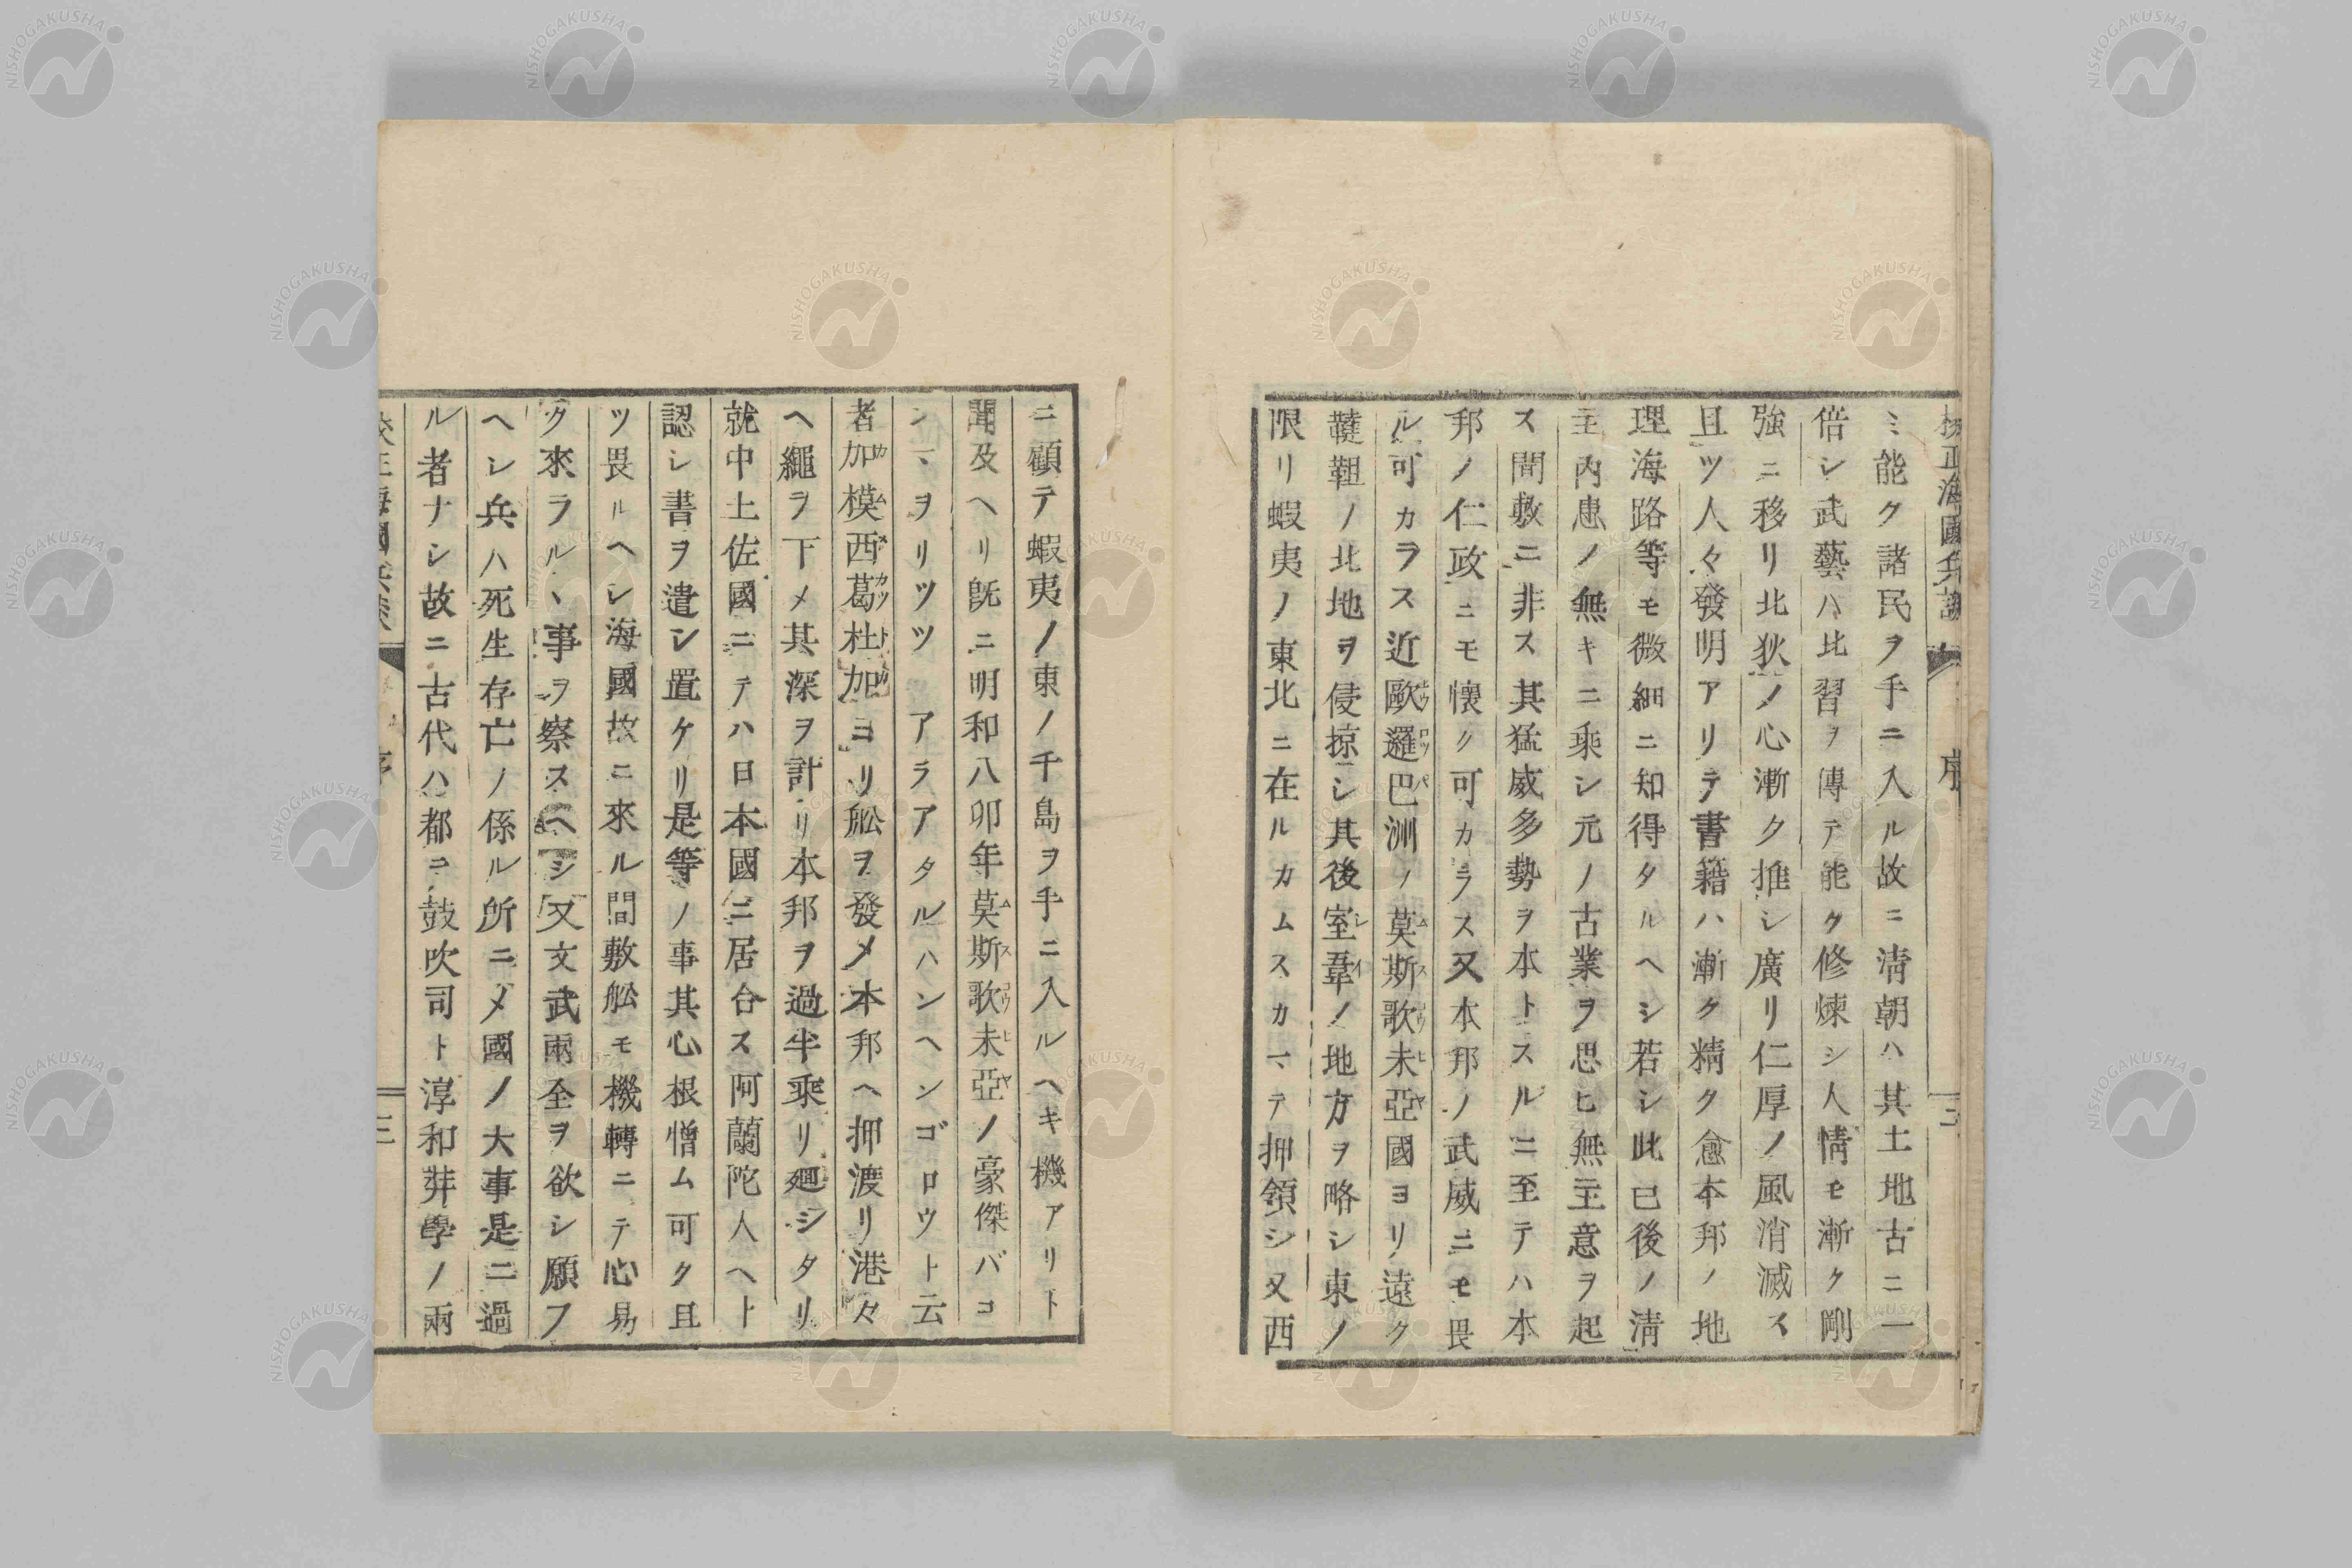 校正海國兵談 序 三
ミ能ク諸民ヲ手ニ入ル故ニ淸朝ハ其土地古ニ一
倍シ武藝ハ比習ヲ傳テ能ク修煉シ人情モ漸ク剛
強ニ移リ北狄ノ心漸ク推シ廣リ仁厚ノ風消滅ス
且ツ人々發明アリテ書籍ハ漸ク精ク愈本邦ノ地
理海路等モ微細ニ知得タルヘシ若シ此已後ノ淸
主内患ノ無キニ乘シ元ノ古業ヲ思ヒ無主意ヲ起
ス間敷ニ非ス其猛威多勢ヲ本トスルニ至テハ本
邦ノ仁政ニモ懷ク可カラス又本邦ノ武威ニモ畏
ル可カラス近歐邏巴洲ノ莫斯歌未亞國ヨリ遠ク
韃靼ノ北地ヲ侵掠シ其後室韋ノ地方ヲ略シ東ノ
限リ蝦夷ノ東北ニ在ルカムスカマテ押領シ又西
ニ顧テ蝦夷ノ東ノ千島ヲ手ニ入ルヘキ機アリト
聞及ヘリ旣ニ明和八卯年莫斯歌未亞ノ豪傑バコ
ンマヲリツツ アラアタルハンヘンゴロウト云
者加模西葛杜加ヨリ舩ヲ發メ本邦ヘ押渡リ港々
ヘ繩ヲ下メ其深ヲ計リ本邦ヲ過半乘リ廻シタリ
就中土佐國ニテハ日本國ニ居合ス阿蘭陀人ヘト
認シ書ヲ遣シ置ケリ是等ノ事其心根憎ム可ク且
ツ畏ルヘシ海國故ニ來ル間敷舩モ機轉ニテ心易
ク來ラルヽ事ヲ察スヘシ又文武兩全ヲ欲シ願フ
ヘレ兵ハ死生存亡ノ係ル所ニメ國ノ大事是ニ過
ル者ナシ故ニ古代ハ都ニ鼓吹司ト淳和弉學ノ兩
NISHOGAKUSHA